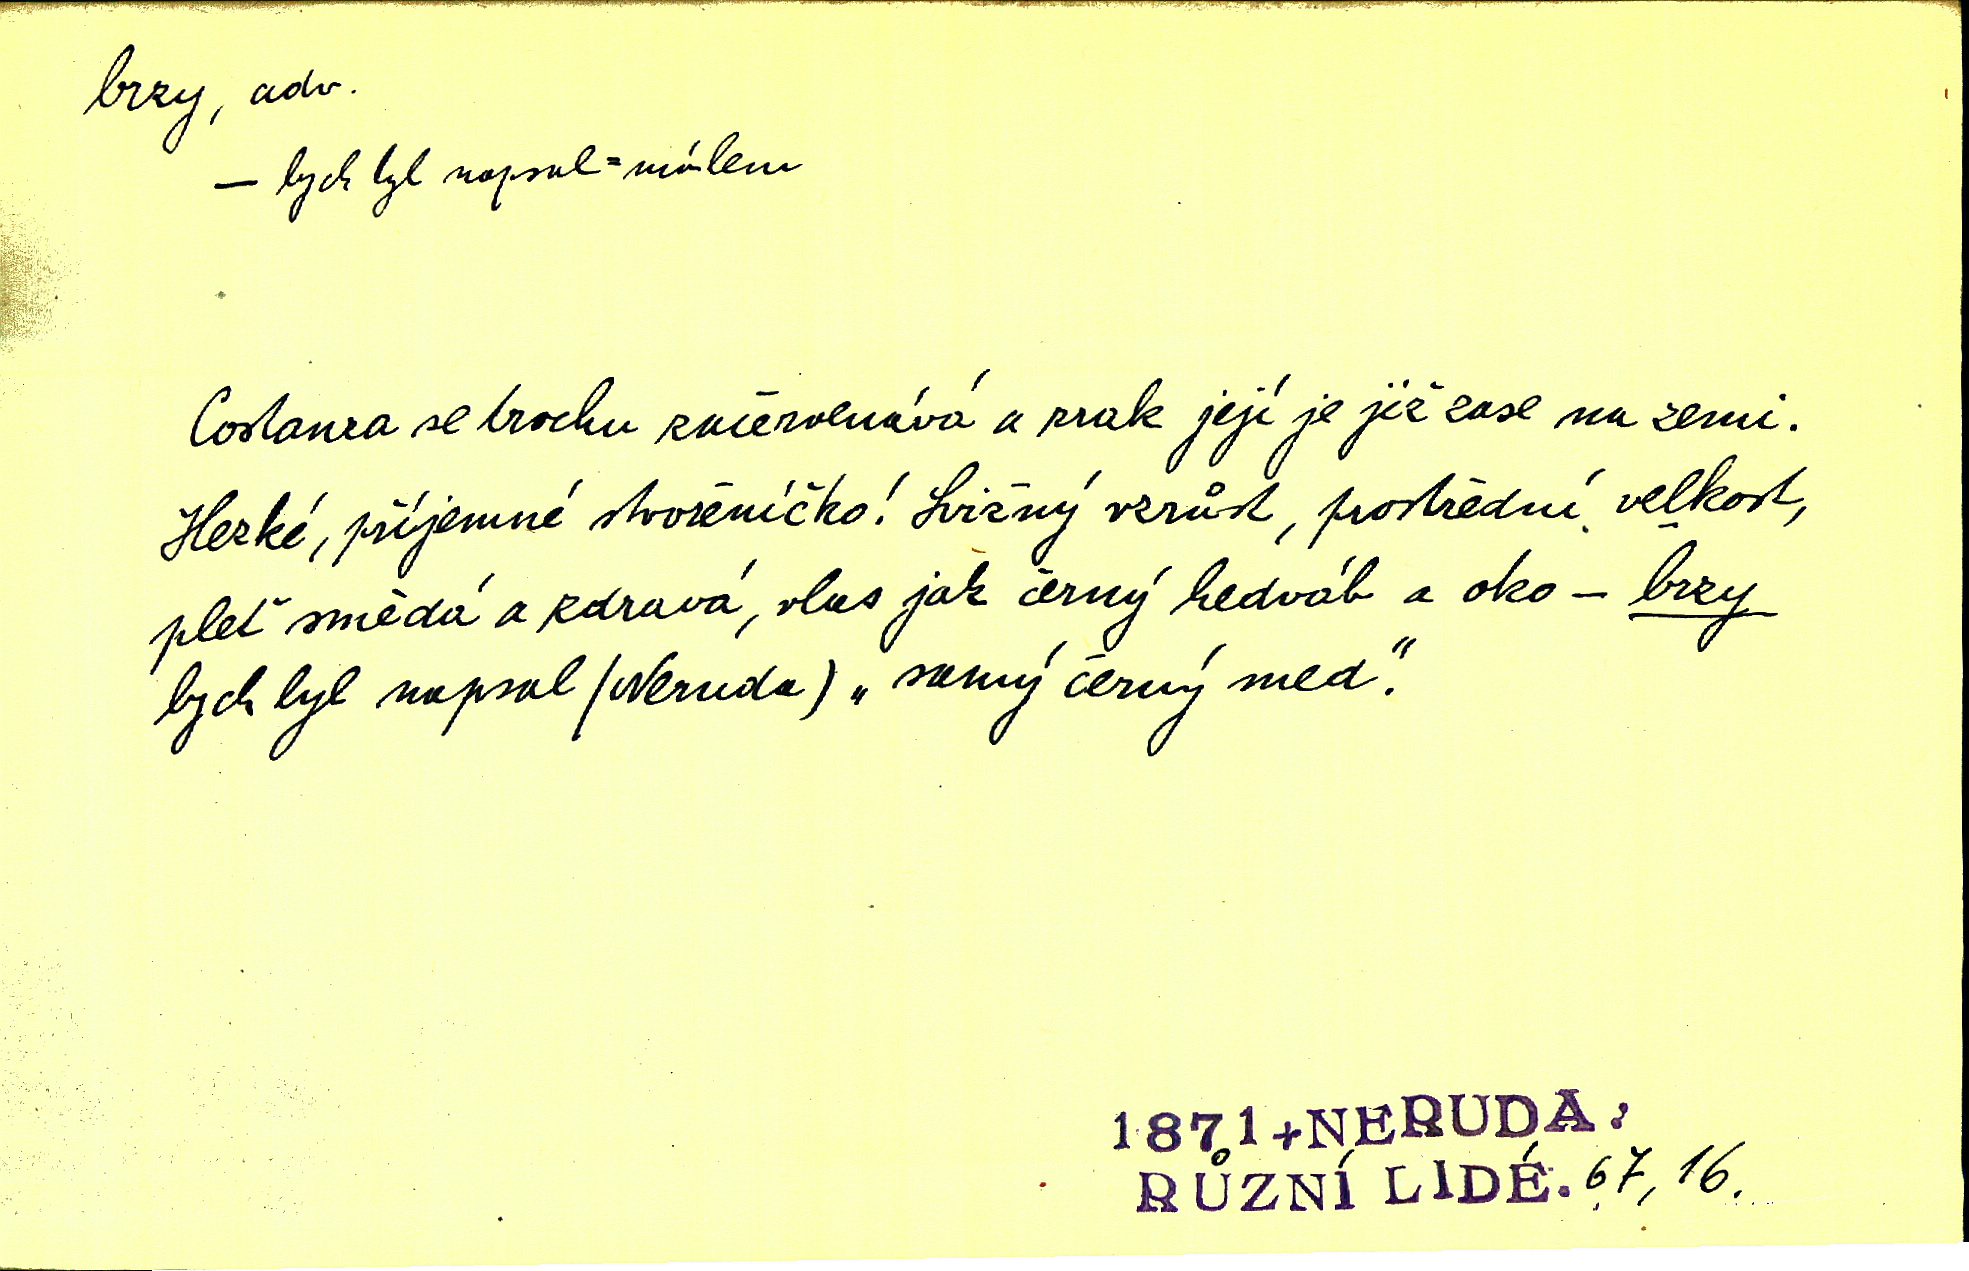 brzy, adv.
— bych byl napsal = málem
Costanza se trochu začervenává a zrak její je již zase na zemi.
Hezké, příjemné stvořeníčko! Svižný vzrůst, prostřední velkost,
pleť smědá a zdravá, vlas jak černý hedváb a oko – brzy
bych byl napsal (Neruda) „samý černý med“.
1871+NERUDA:
RŮZNÍ LIDÉ. 67, 16.